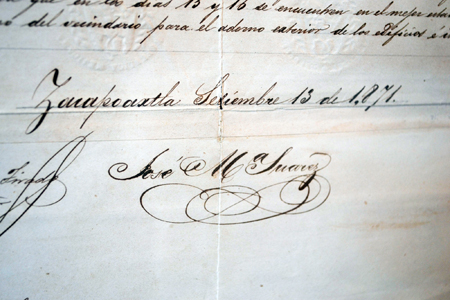 que en los dias 15 y 16 se encuentren en el mejor
del vecindario para el adorno exterior de los edificios é
Zacapoaxtla Setiembre 13 de 1,871.
José Mª Juarez